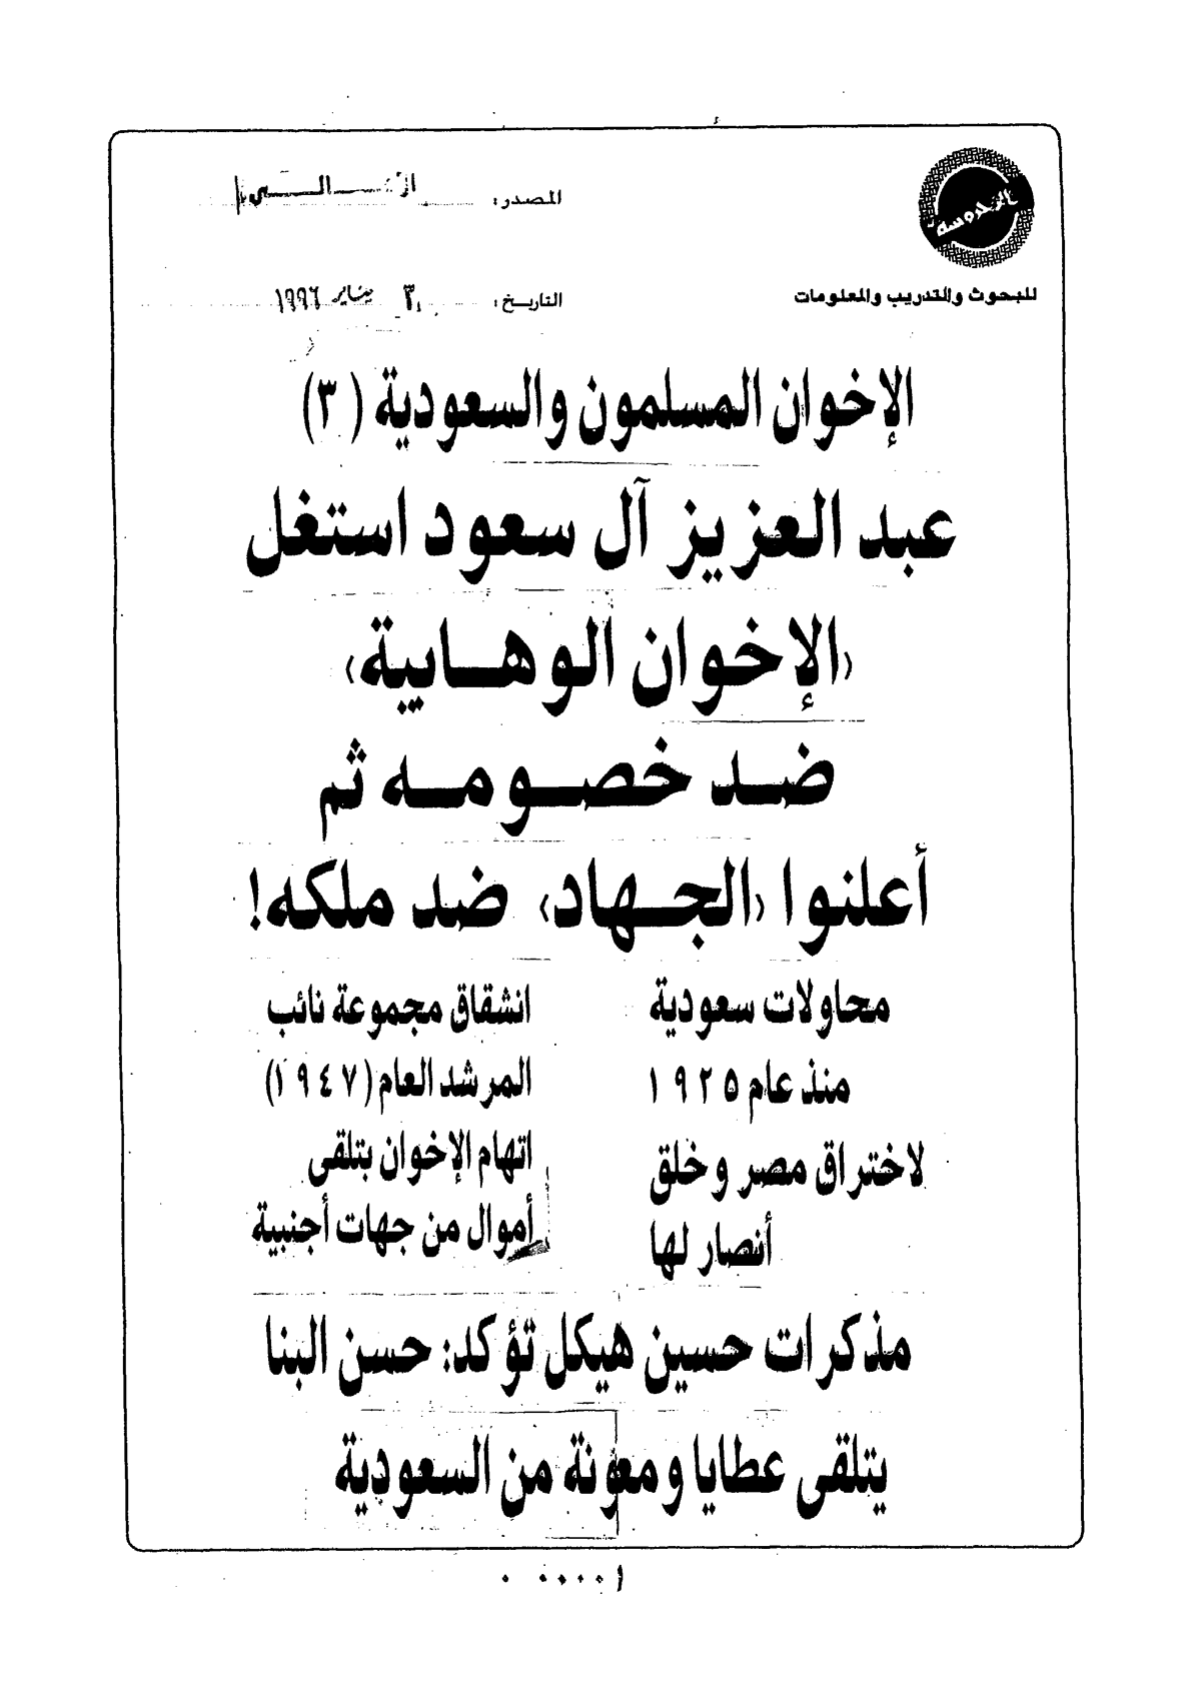 المحروسة
للبحوث والتدريب والمعلومات
المصدر:
التاريخ: ٣ يناير ١٩٩٦
الإخوان المسلمون والسعودية (٣)
عبد العزيز آل سعود استغل
«الإخوان الوهابية»
ضد خصومه ثم
أعلنوا «الجهاد» ضد ملكه!
محاولات سعودية
منذ عام ١٩٢٥
لاختراق مصر وخلق
أنصار لها
انشقاق مجموعة نائب
المرشد العام (١٩٤٧)
اتهام الإخوان بتلقى
أموال من جهات أجنبية
مذكرات حسين هيكل تؤكد: حسن البنا
يتلقى عطايا ومعونة من السعودية